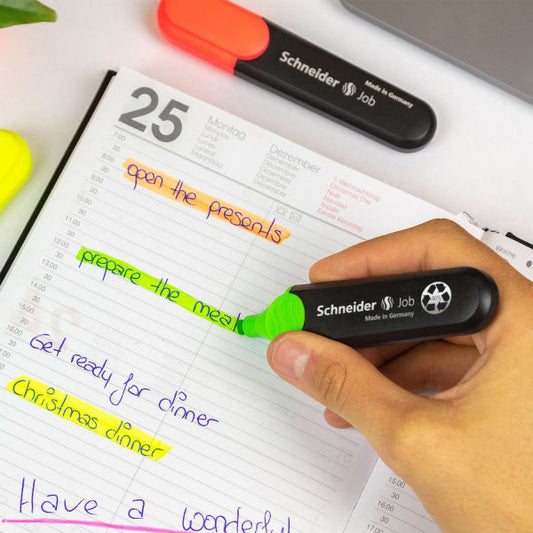 Schneider Job
Made in Germany
25
Montag
Dezember
December
1. Weihnachtstag
Christmas Day
Noël
Navidad
Natale
Eerste Kerstdag
Woche
7.00
30
8.00
30
9.00
30
10.00
30
11.00
30
12.00
30
13.00
30
14.00
30
15.00
30
16.00
30
open the presents
prepare the meal
Get ready for dinner
Christmas dinner
Have a wonderful
Schneider Job
Made in Germany
15.00
30
16.00
30
17.00